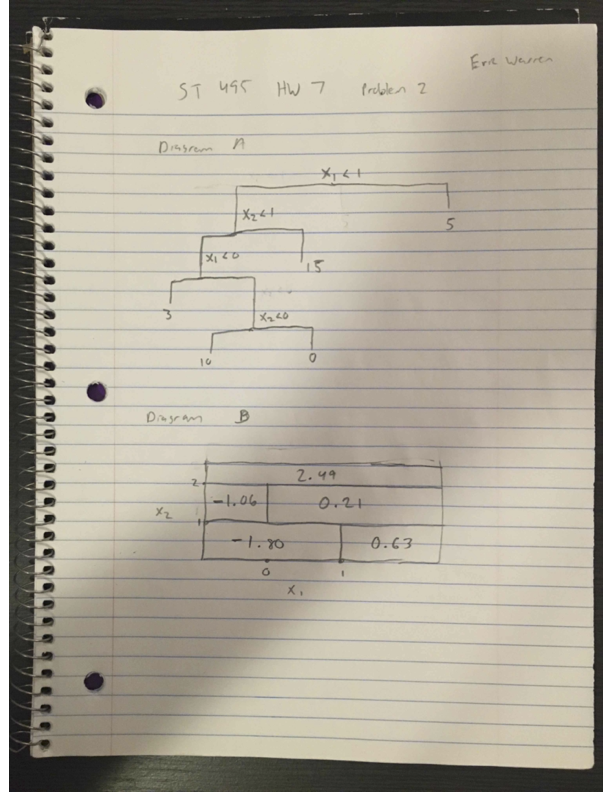 Eric Warren
ST 495 HW 7 Problem 2
Diagram A
X1 < 1
X2 < 1
5
X1 < 0
15
3
X2 < 0
10 0
Diagram B
2 2.49
-1.06 0.21
X2
1
-1.80 0.63
0 1
X1